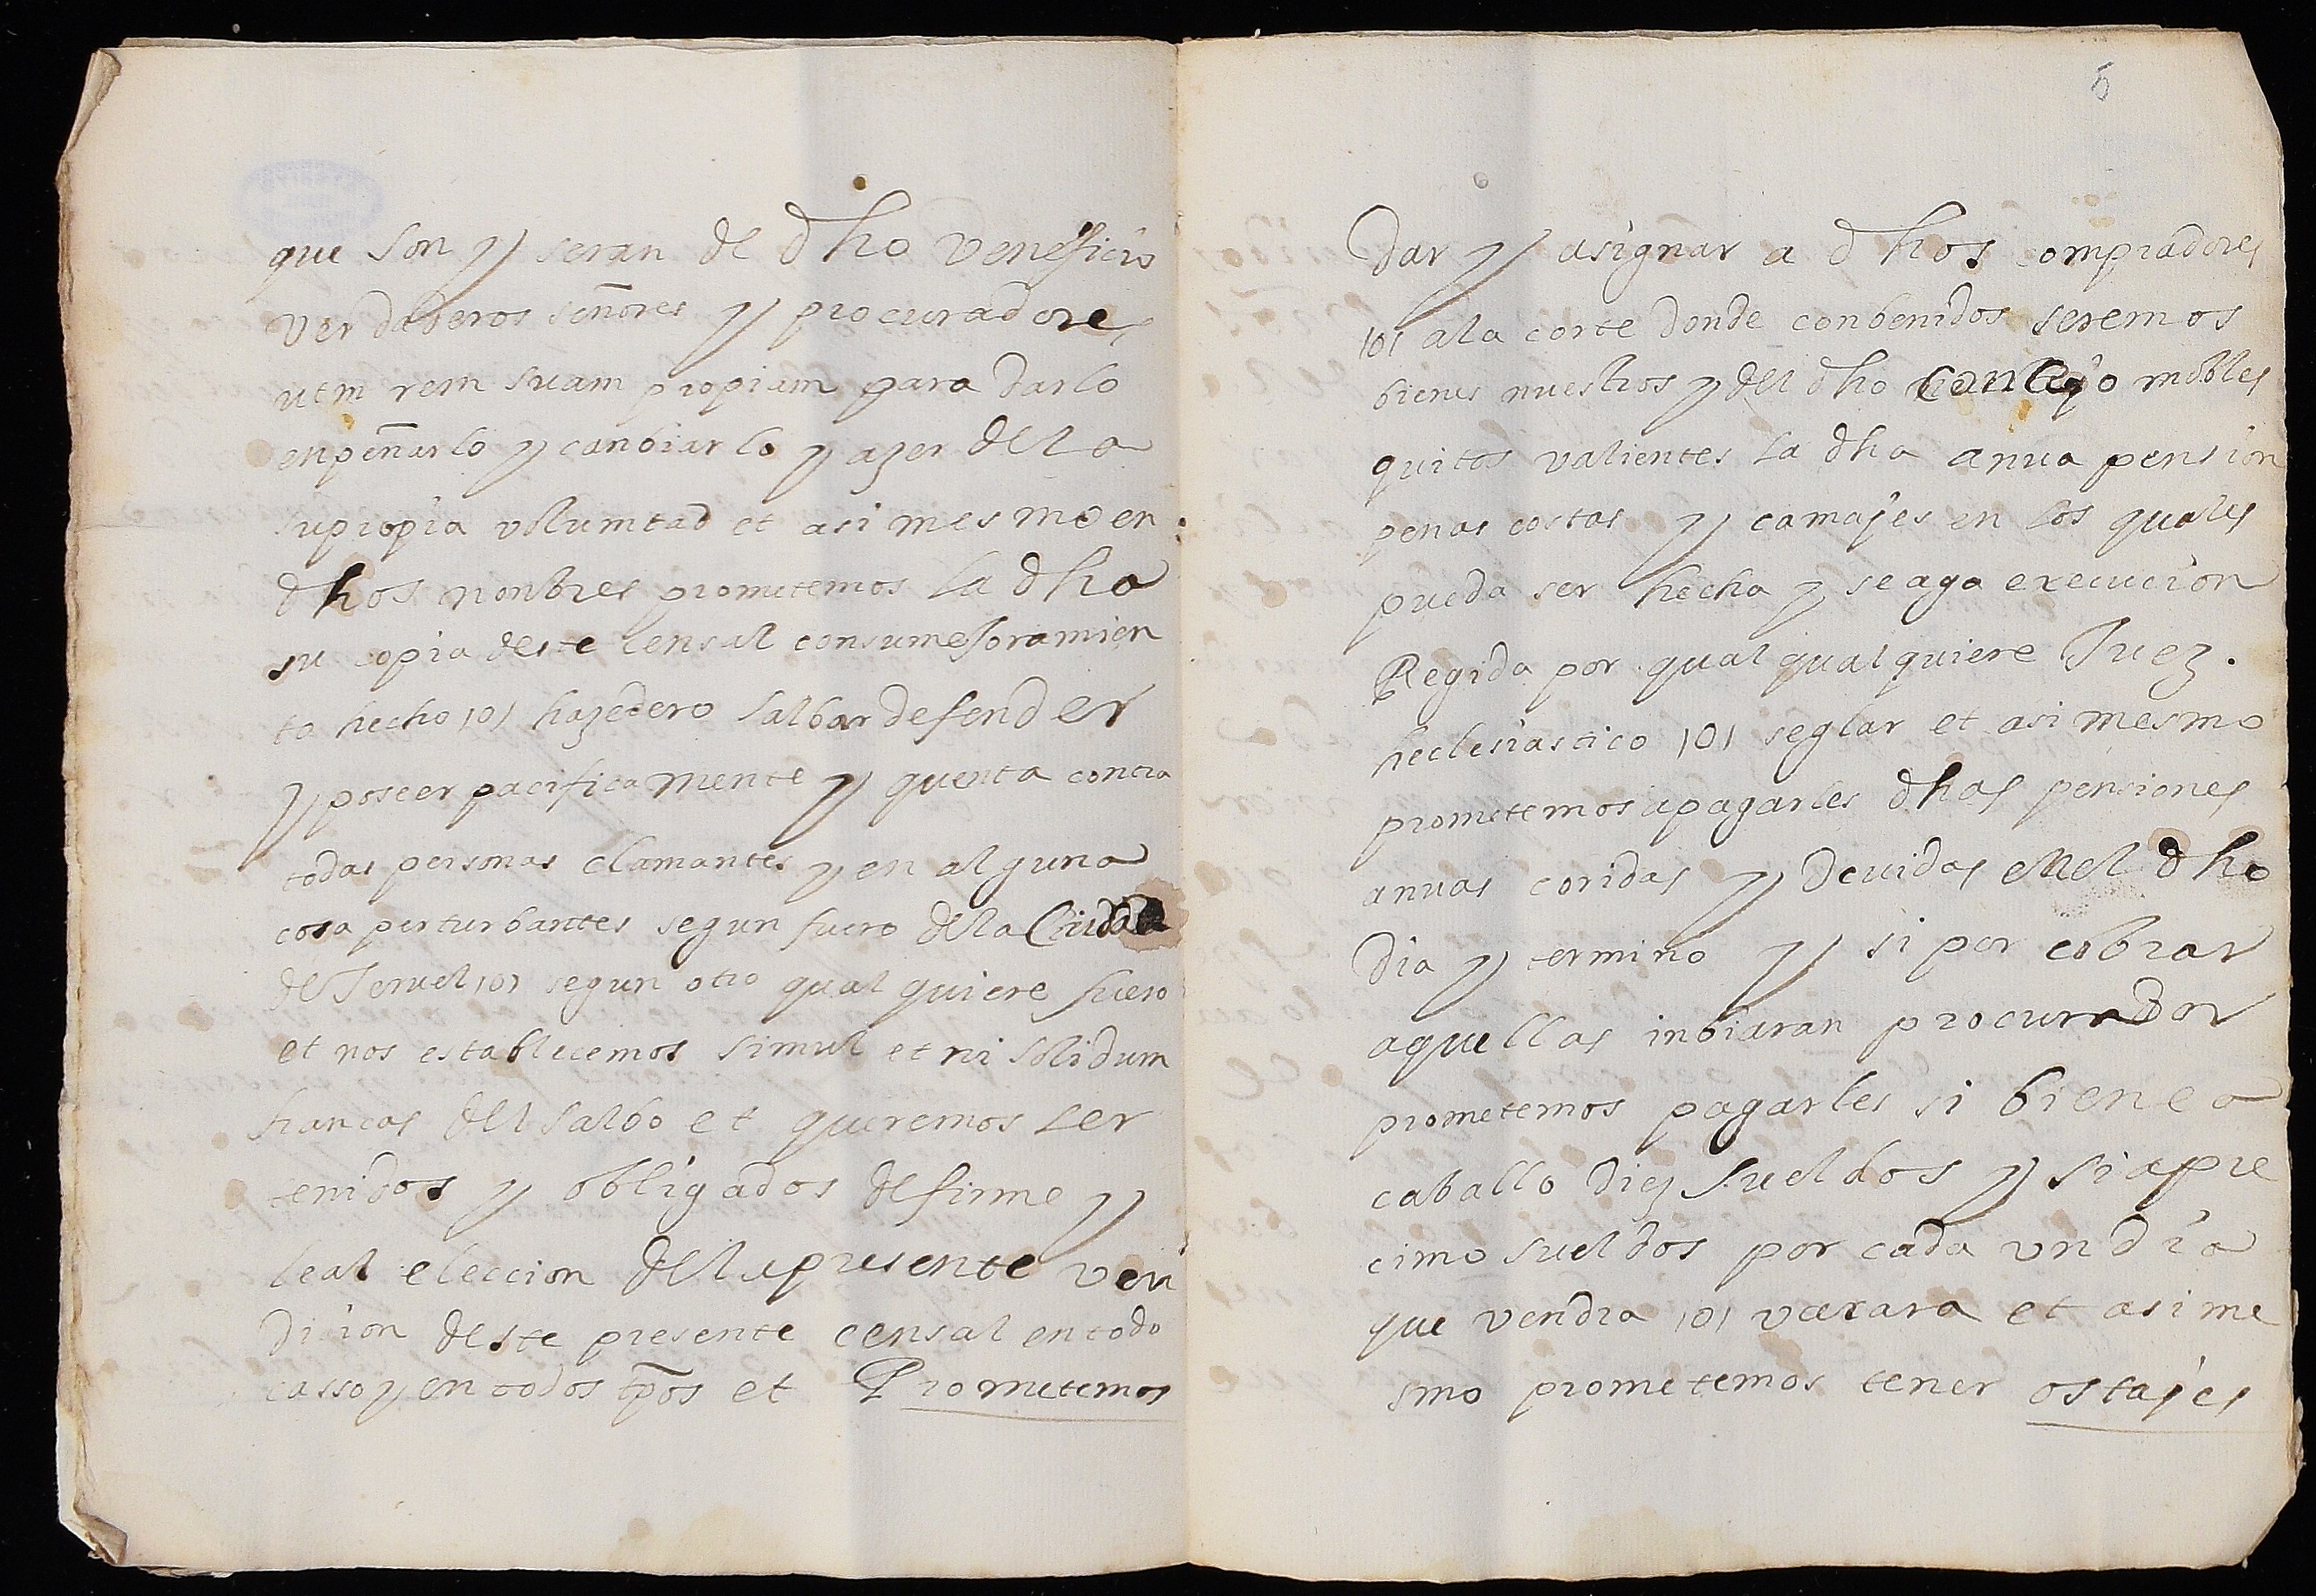 que son y seran de dho Veneficio
Verdaderos señores y procuradores
utm rem suam propiam para darlo
enpeñarlo y canbiarlo y azer dela
supropia volumtad et asi mesmo en
dhos nonbres prometemos la dha
su copia deste censal consumeJoramien
to hecho /o/ hazedero salbar defender
y poseer pacificamente y quenta contra
todas personas clamantes y en alguna
cosa perturbantes segun fuero dela Ciudad
de Teruel /o/ segun otro qual quiere fuero
et nos establecemos simul et ni solidum
fiancas del salbo et queremos ser
tenidos y obligados de firme y
leal eleccion dela presente ven
dicion deste presente censal en todo
casso y en todos tp̄os et Prometemos
5
Dar y asignar a dhos compradores
/o/ ala corte donde conbenidos seremos
bienes nuestros y del dho Concejo mobles
quitos valientes la dha anua pension
penas costas y camajes en los quales
pueda ser hecha y se aga execucion
Regida por qual qual quiere Juez.
heclesiastico /o/ seglar et asi mesmo
prometemos apagarles dhas pensiones
anuas coridas y devidas enel dho
dia y termino y si por cobrar
aquellas inbiaran procurador
prometemos pagarles si biene a
caballo diez sueldos y si apie
cimo sueldos por cada un dia
que vendra /o/ vaxara et asi me
smo prometemos tener ostajes